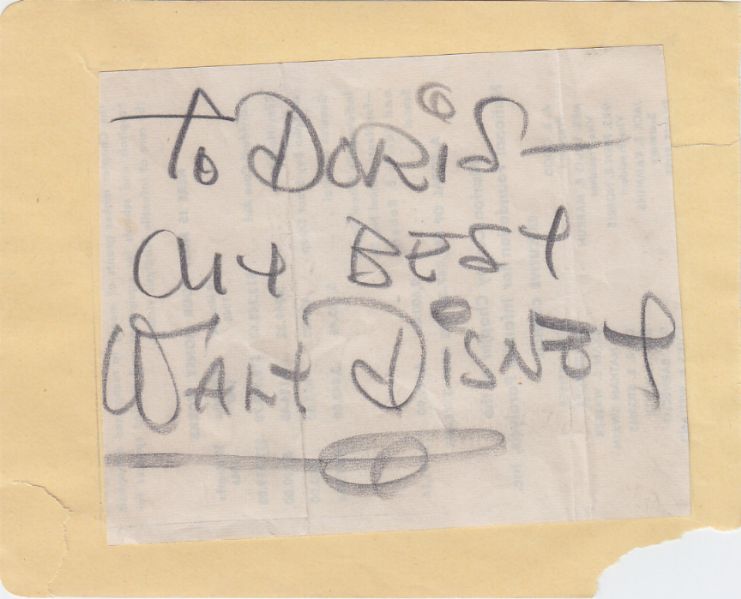 To DORiS—
My BEST
WALT DiSNEY